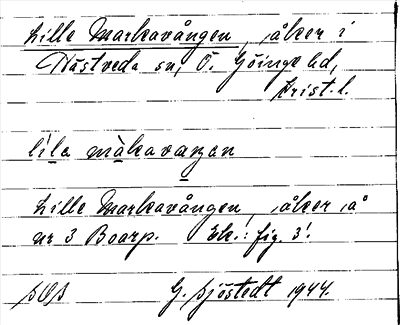 Lille Markavången, åker i
Hästveda sn, Ö. Göinge hd,
Krist. l.
lila màkavaŋen
Lille Markavången, åker å
nr 3 Boarp. Ek.: fig. 3.
SOS G. Sjöstedt 1944.